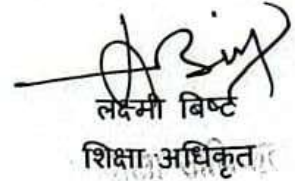 लक्ष्मी बिष्ट
शिक्षा अधिकृत